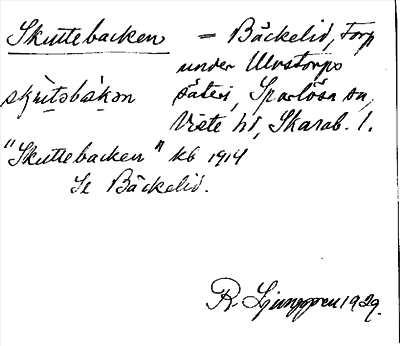 Skuttebacken — Bäckelid, Torp
under Ulvstorps
skutsbakən säteri, Sparlösa sn,
Viste hd, Skarab. l.
"Skuttebacken" kb 1914
Se Bäckelid.
R. Ljunggren 1929.